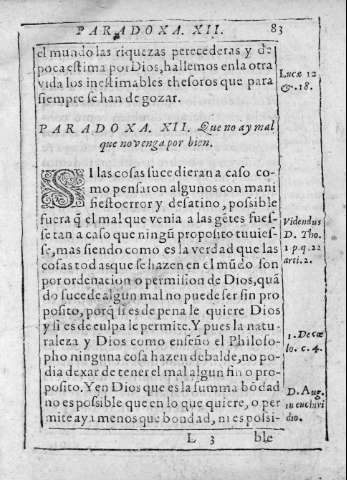 PARADOXA. XII. 83
el mundo las riquezas perecederas y de
poca estima por Dios, hallemos en la otra
vida los inestimables thesoros que para
siempre se han de gozar.
Lucæ 12
&. 18.
PARADOXA. XII. Que no ay mal
que no venga por bien.
SI las cosas sucedieran a caso co-
mo pensaron algunos con mani
fiesto error y desatino, possible
fuera q̃ el mal que venia a las gẽtes fues-
se tan a caso que ningũ proposito tuuies-
se, mas siendo como es la verdad que las
cosas todas que se hazen en el mũdo son
por ordenacion o permision de Dios, quã
do sucede algun mal no puede ser sin pro
posito, porq̃ si es de pena le quiere Dios
y si es de culpa le permite. Y pues la natu-
raleza y Dios como enseño el Philoso-
pho ninguna cosa hazen debalde, no po-
dia dexar de tener el mal algun fin o pro-
posito. Y en Dios que es la summa bõdad
no es possible que en lo que quiere, o per
mite aya menos que bondad, ni es possi-
Videndus
D. Tho.
1 p. q. 22
arti. 2.
1. De cœ
lo. c. 4.
D. Aug.
in enchiri
dio.
L 3 ble